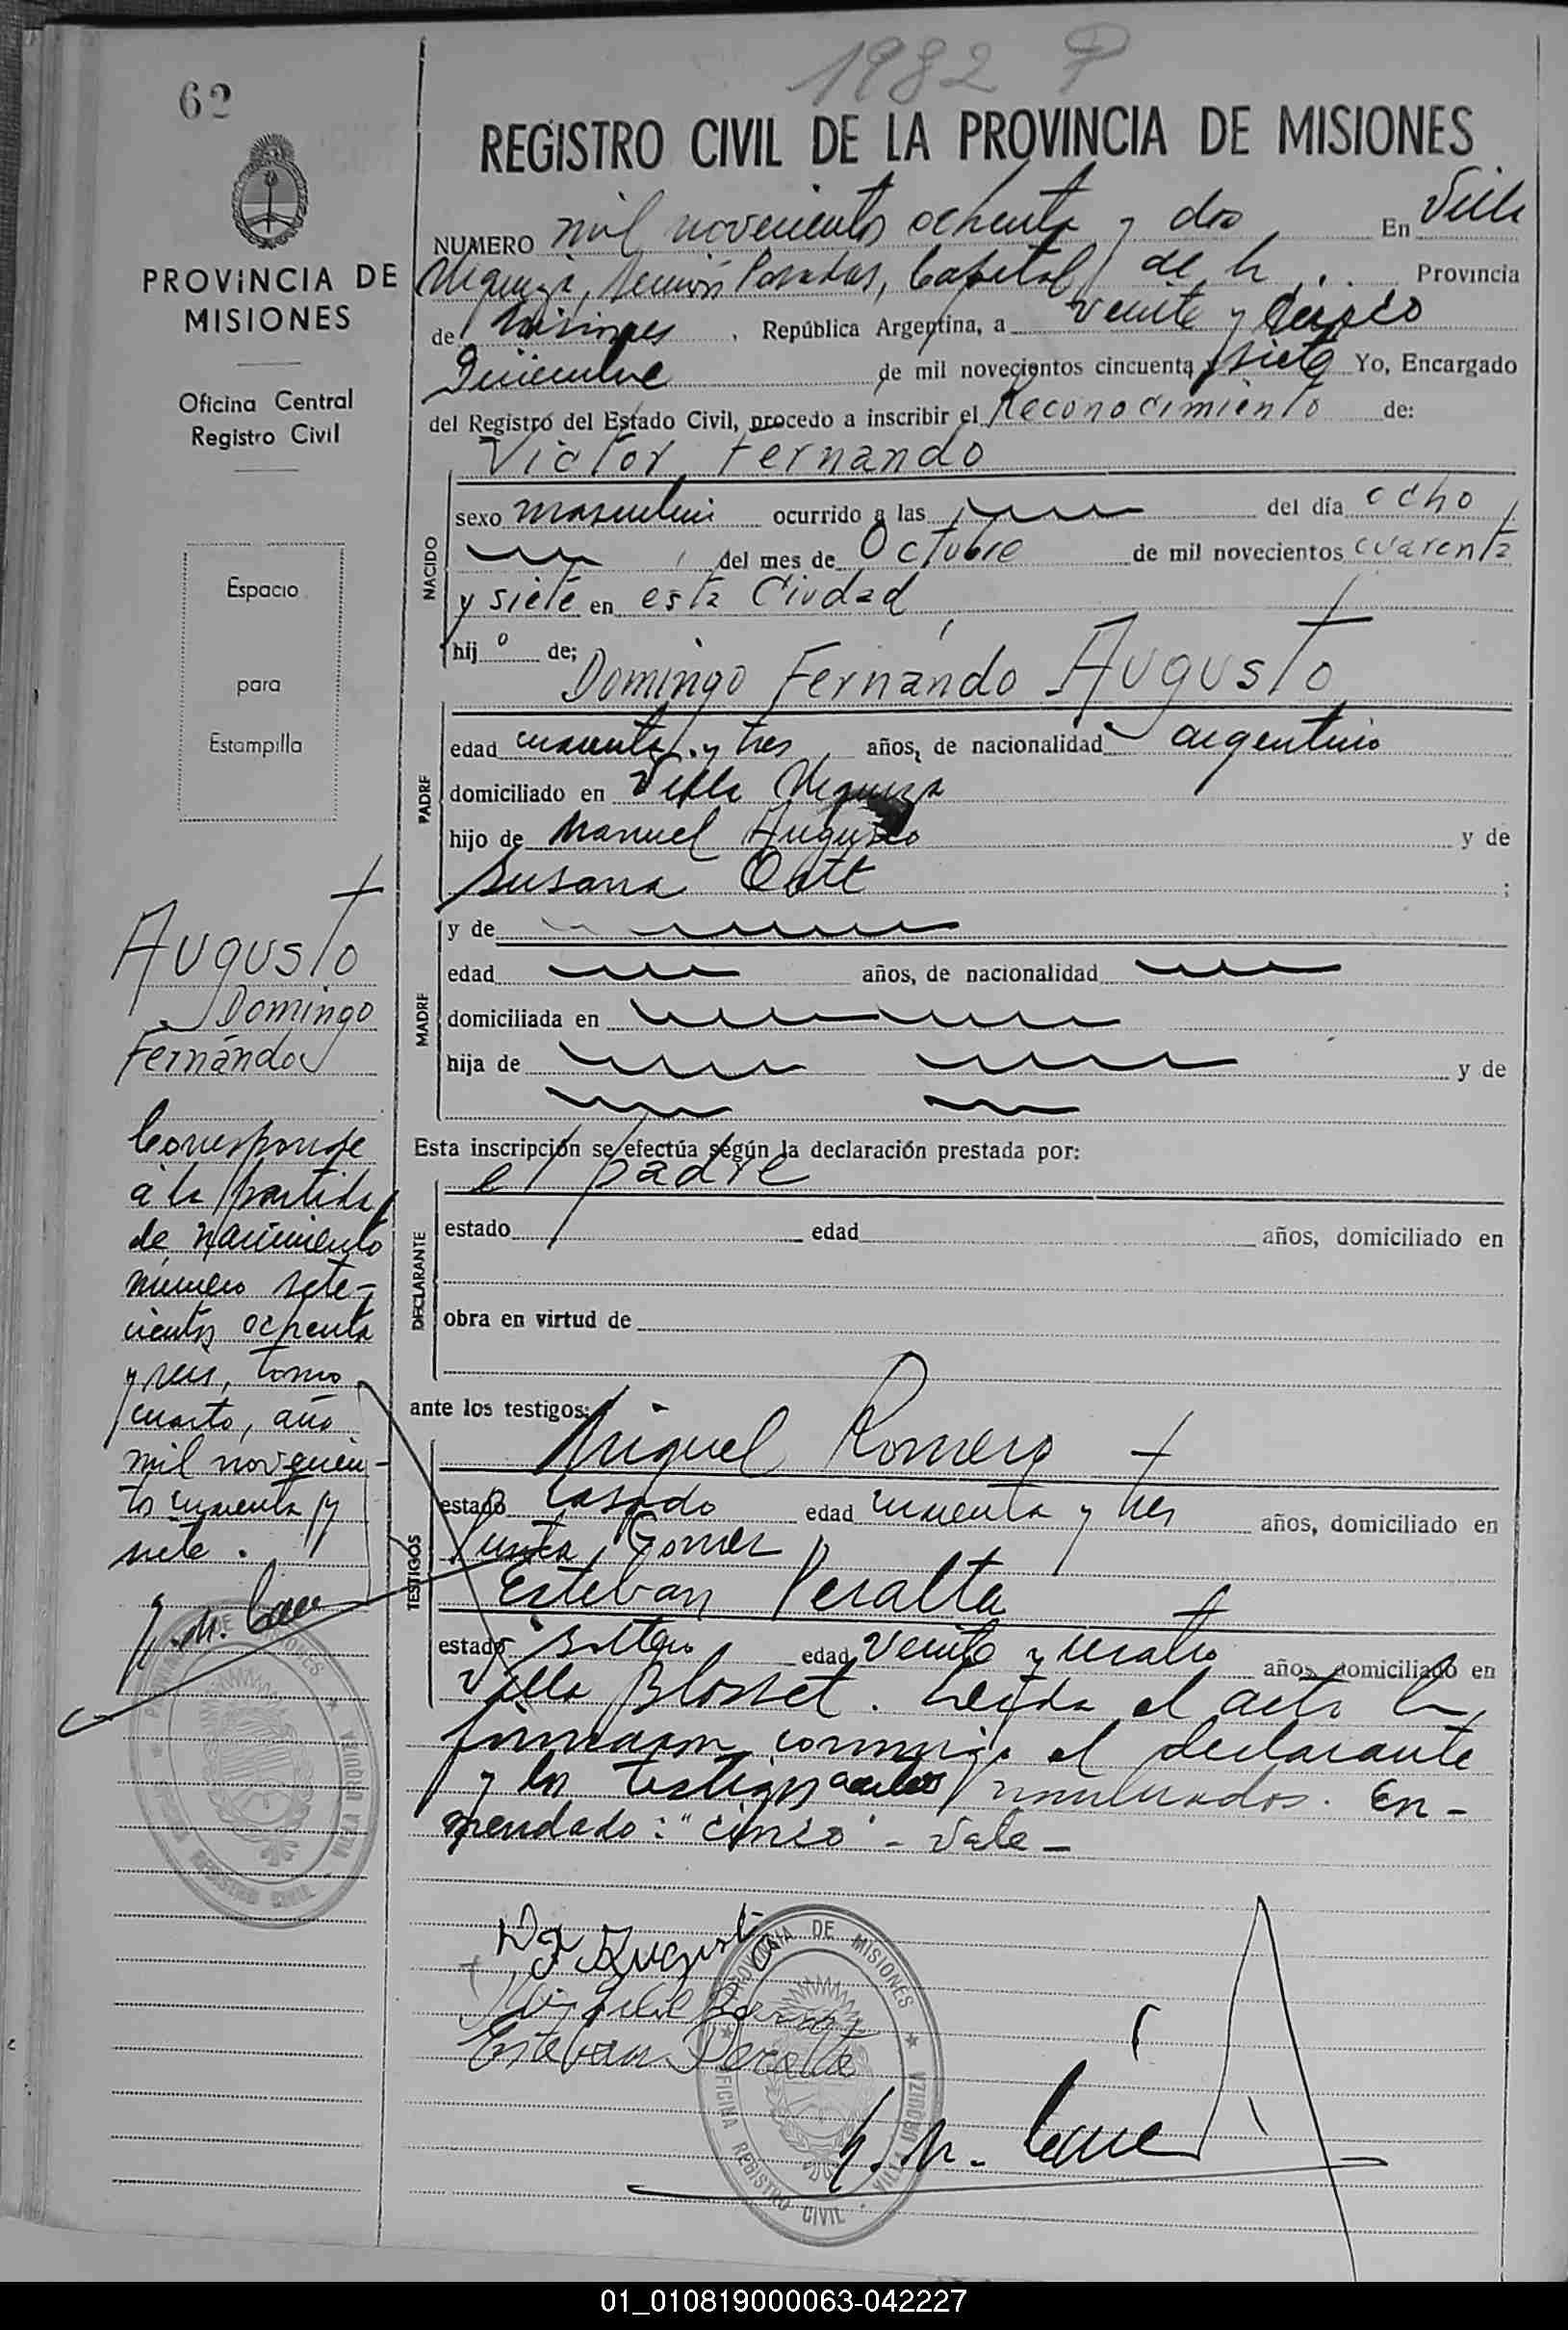 1982 P
62
REGISTRO CIVIL DE LA PROVINCIA DE MISIONES
PROVINCIA DE
MISIONES
Oficina Central
Registro Civil
Espacio
para
Estampilla
NUMERO mil novecientos ochenta y dos En Villa
Urquiza, Sección Posadas, Capital de la Provincia
de Misiones, República Argentina, a veinte y cinco
Diciembre de mil novecientos cincuenta y siete Yo, Encargado
del Registro del Estado Civil, procedo a inscribir el Reconocimiento de:
Victor Fernando
NACIDO
sexo masculino ocurrido a las del día ocho
del mes de Octubre de mil novecientos cuarenta
y siete en esta Ciudad,
hijo de;
Domingo Fernando Augusto
PADRE
edad cuarenta y tres años, de nacionalidad argentino
domiciliado en Villa Urquiza
hijo de Manuel Augusto y de
Susana ;
MADRE
y de
edad años, de nacionalidad
domiciliada en
hija de y de
Esta inscripción se efectúa según la declaración prestada por:
el padre
DECLARANTE
estado edad años, domiciliado en
obra en virtud de
ante los testigos:
Miguel Romero
TESTIGOS
estado casado edad cuarenta y tres años, domiciliado en
Punta Gomez
Esteban Peralta
estado soltero edad veinte y cuatro años domiciliado en
Villa Blosset. Leída el acta la
firmaron conmigo el declarante
y los testigos nombrados. En-
mendado: "cinco" - Vale -
Augusto
Domingo
Fernando
Corresponde
a la partida
de nacimiento
número sete-
cientos ochenta
y seis, tomo
cuarto, año
mil novecien-
tos cuarenta y
siete.
D F Augusto
Miguel Romero
Esteban Peralta
PROVINCIA DE MISIONES
OFICINA REGISTRO CIVIL
VILLA URQUIZA
01_010819000063-042227